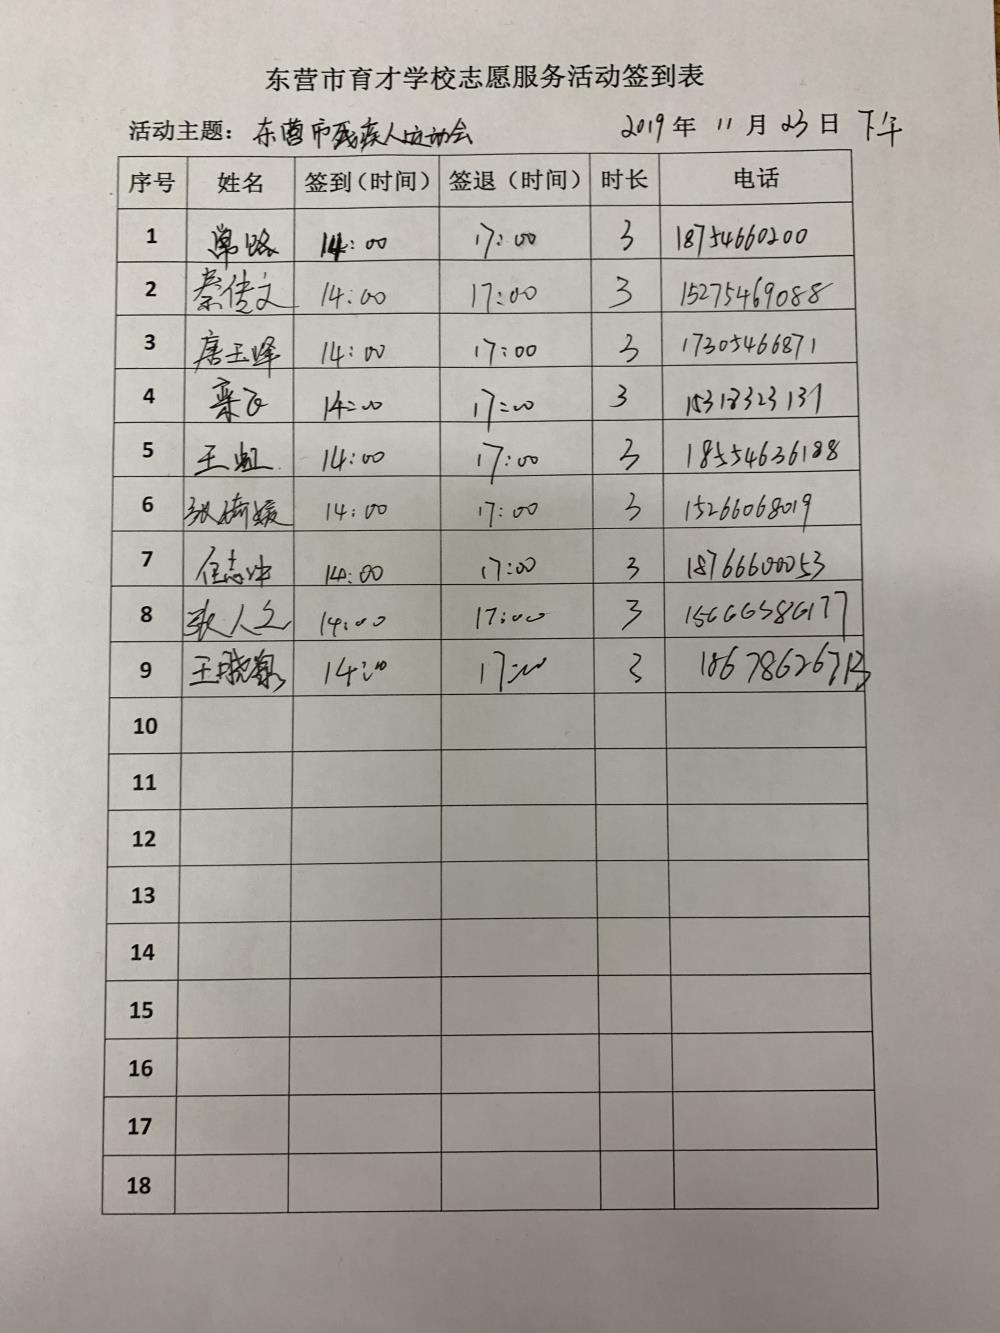 东营市育才学校志愿服务活动签到表
活动主题：东营市残疾人运动会 2019年 11月 23日 下午
序号 姓名 签到（时间） 签退（时间） 时长 电话
1 常路 14:00 17:00 3 18754660200
2 秦传文 14:00 17:00 3 15275469088
3 唐玉峰 14:00 17:00 3 17305466871
4 栾飞 14:00 17:00 3 15318323137
5 王虹 14:00 17:00 3 18554636188
6 张倚媛 14:00 17:00 3 15266068019
7 任志冲 14:00 17:00 3 18766600053
8 张人文 14:00 17:00 3 15666586177
9 王晓 14:00 17:00 3 18678626713
10
11
12
13
14
15
16
17
18